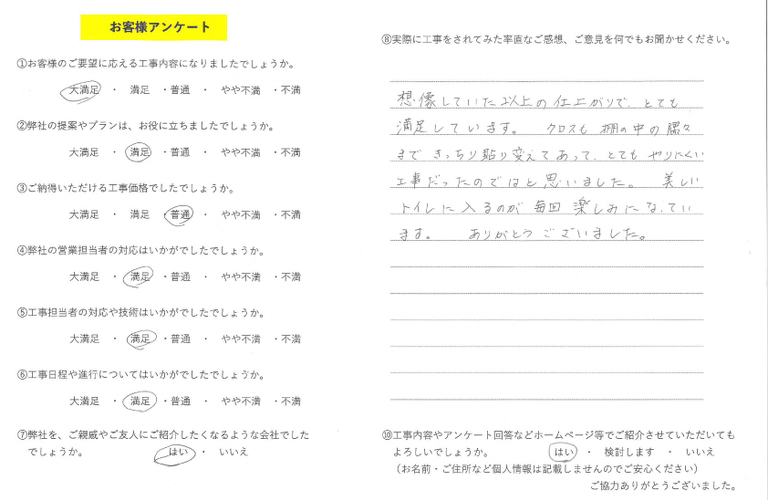 お客様アンケート
①お客様のご要望に応える工事内容になりましたでしょうか。
大満足 ・ 満足 ・普通 ・ やや不満 ・不満
②弊社の提案やプランは、お役に立ちましたでしょうか。
大満足 ・ 満足 ・普通 ・ やや不満 ・不満
③ご納得いただける工事価格でしたでしょうか。
大満足 ・ 満足 ・普通 ・ やや不満 ・不満
④弊社の営業担当者の対応はいかがでしたでしょうか。
大満足 ・ 満足 ・普通 ・ やや不満 ・不満
⑤工事担当者の対応や技術はいかがでしたでしょうか。
大満足 ・ 満足 ・普通 ・ やや不満 ・不満
⑥工事日程や進行についてはいかがでしたでしょうか。
大満足 ・ 満足 ・普通 ・ やや不満 ・不満
⑦弊社を、ご親戚やご友人にご紹介したくなるような会社でした
でしょうか。 はい ・ いいえ
⑧実際に工事をされてみた率直なご感想、ご意見を何でもお聞かせください。
想像していた以上の仕上がりで、とても
満足しています。 クロスも棚の中の隅々
まできっちり貼り変えてあって、とてもやりにくい
工事だったのではと思いました。 美しい
トイレに入るのが毎回楽しみになってい
ます。 ありがとうございました。
⑩工事内容やアンケート回答などホームページ等でご紹介させていただいても
よろしいでしょうか。 はい ・ 検討します ・ いいえ
（お名前・ご住所など個人情報は記載しませんのでご安心ください）
ご協力ありがとうございました。